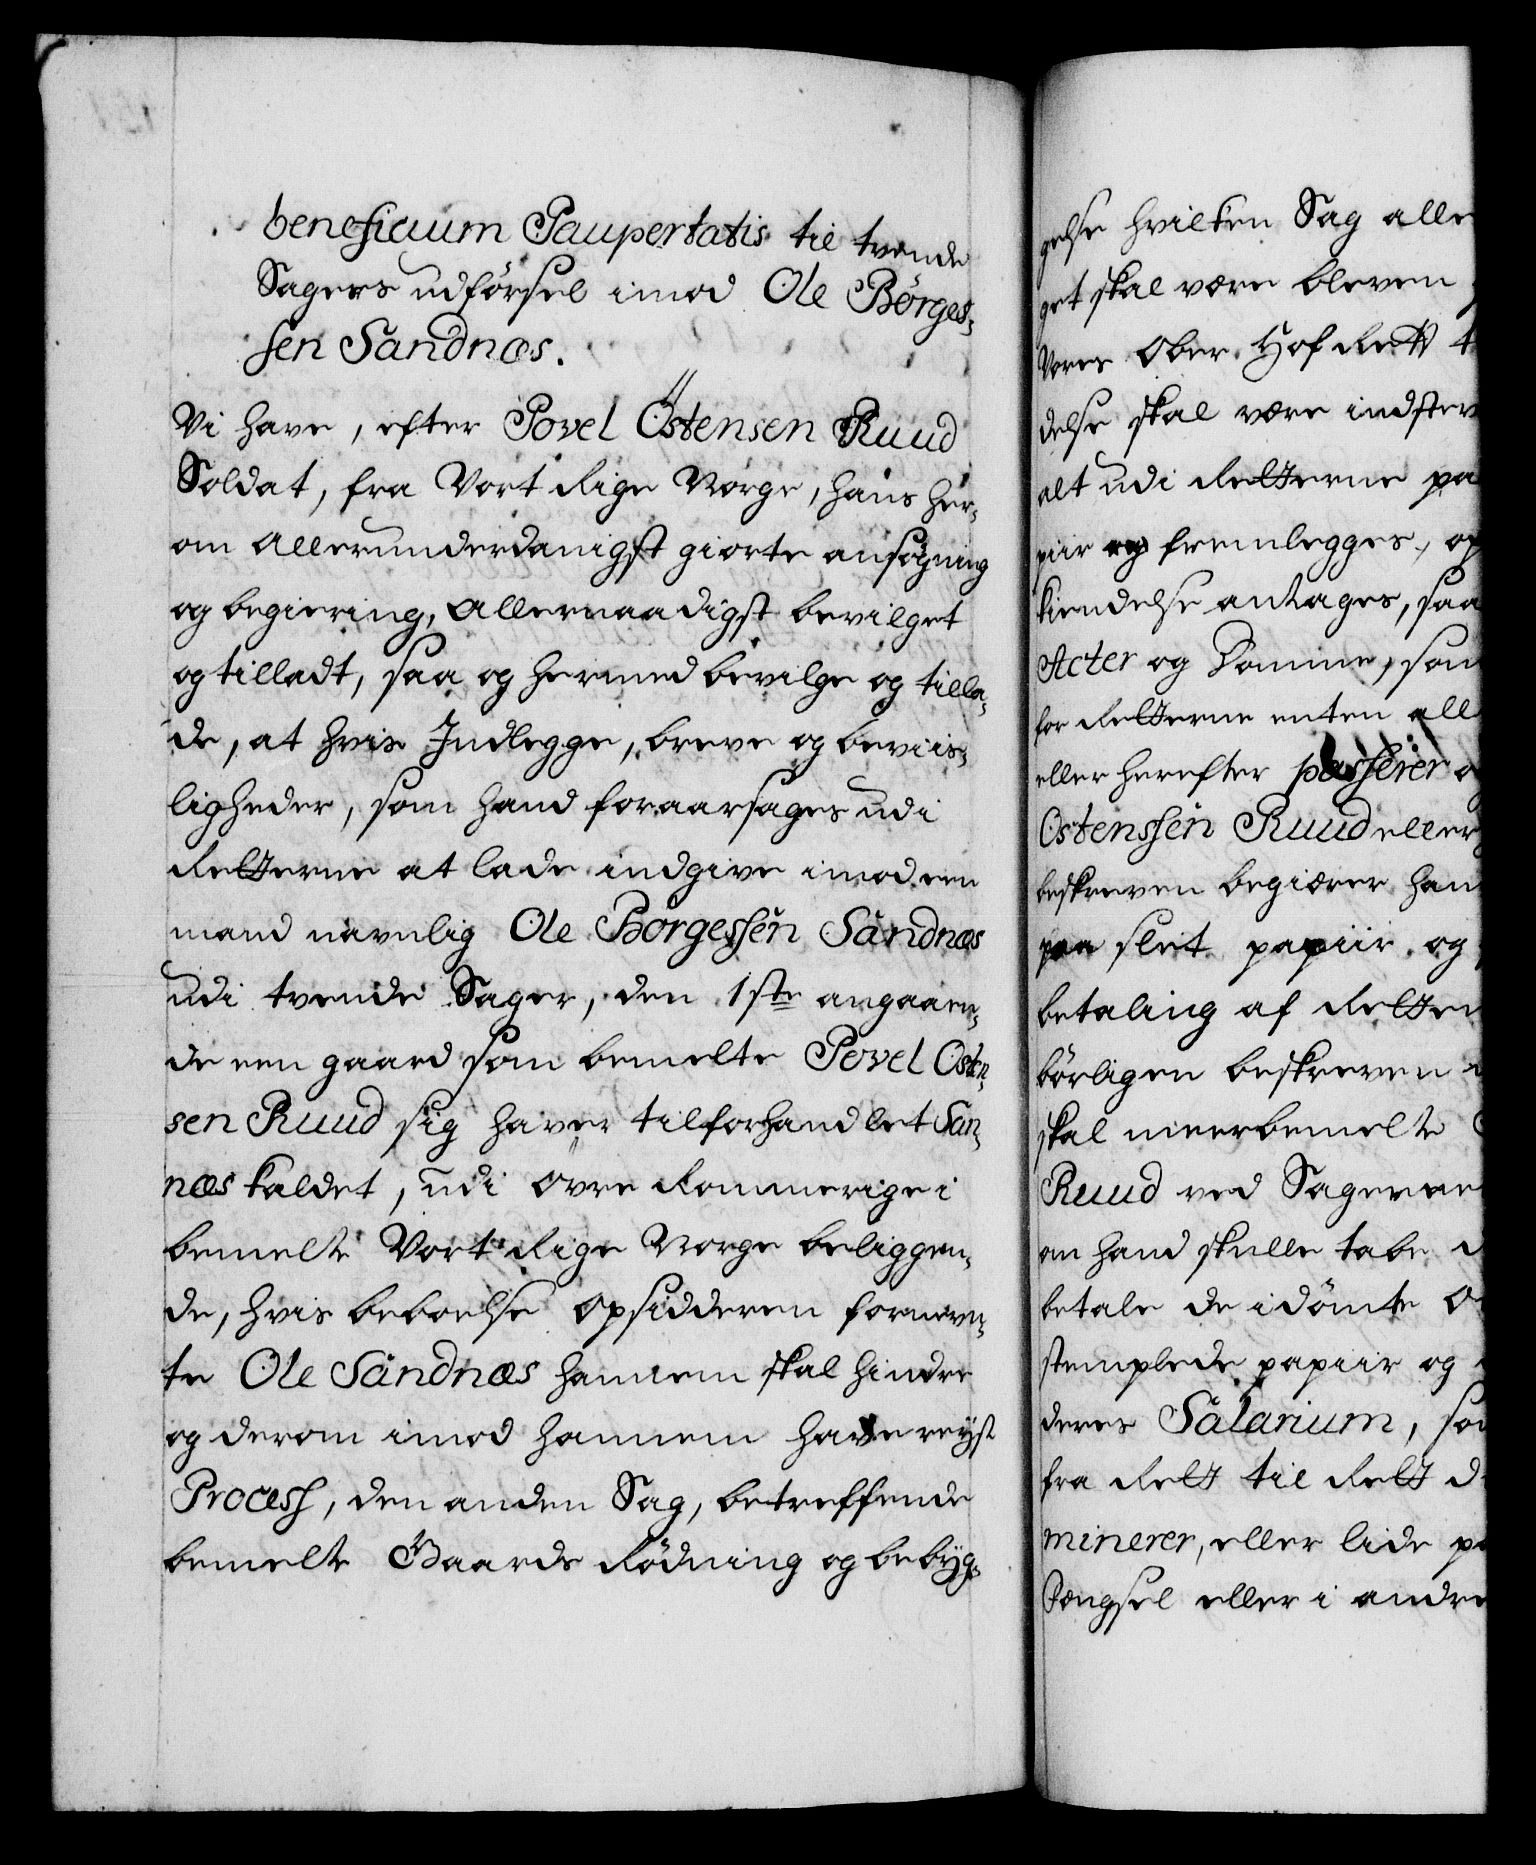 beneficium Paupertatis til tvende
Sagers udførsel imod Ole Börges-
sen Sandnæs.
Vi have, efter Povel Östensen Ruud
Soldat, fra Vort Rige Norge, hans her-
om allerunderdanigst giorte ansøgning
og begiering, allernaadigst bevilget
og tilladt, saa og hermed bevilge og tilla-
de, at hvis Indlegge, breve og beviis-
ligheder, som hand foraarsages udi
Retterne at lade indgive imod een
mand navnlig Ole Borgessen Sandnæs
udi tvende Sager, den 1ste angaaen-
de een gaard som bemelte Povel Osten-
sen Ruud sig haver tilforhandlet San-
næs kaldet, udi Øvre Rommerige i
bemelte Vort Rige Norge beliggen-
de, hvis beboelse opsidderen fornevn-
te Ole Sandnæs hannem skal hindre
og derom imod hannem have reyst
Process, den anden Sag, betreffende
bemelte Gaards Rødning og bebyg-
gelse hvilken Sag alle
get skal være bleven
Vores Ober Hof Rett t
delse skal være indstev
alt udi Retterne pa
piir og fremlegges, op
kiendelse antages, saa
Acter og Domme, som
for Retterne enten all
eller herefter passerer o
Ostenssen Ruud eller
beskreven begiærer han
paa slet papiir og
betaling af Retten
børligen beskreven
skal meerbemelte
Ruud ved Sagerne
om hand skulle tabe
betale de idømte O
stemplede papiir og
deres Salarium, som
fra Rett til Rett d
minerer, eller lide pa
Fængsel eller i andre